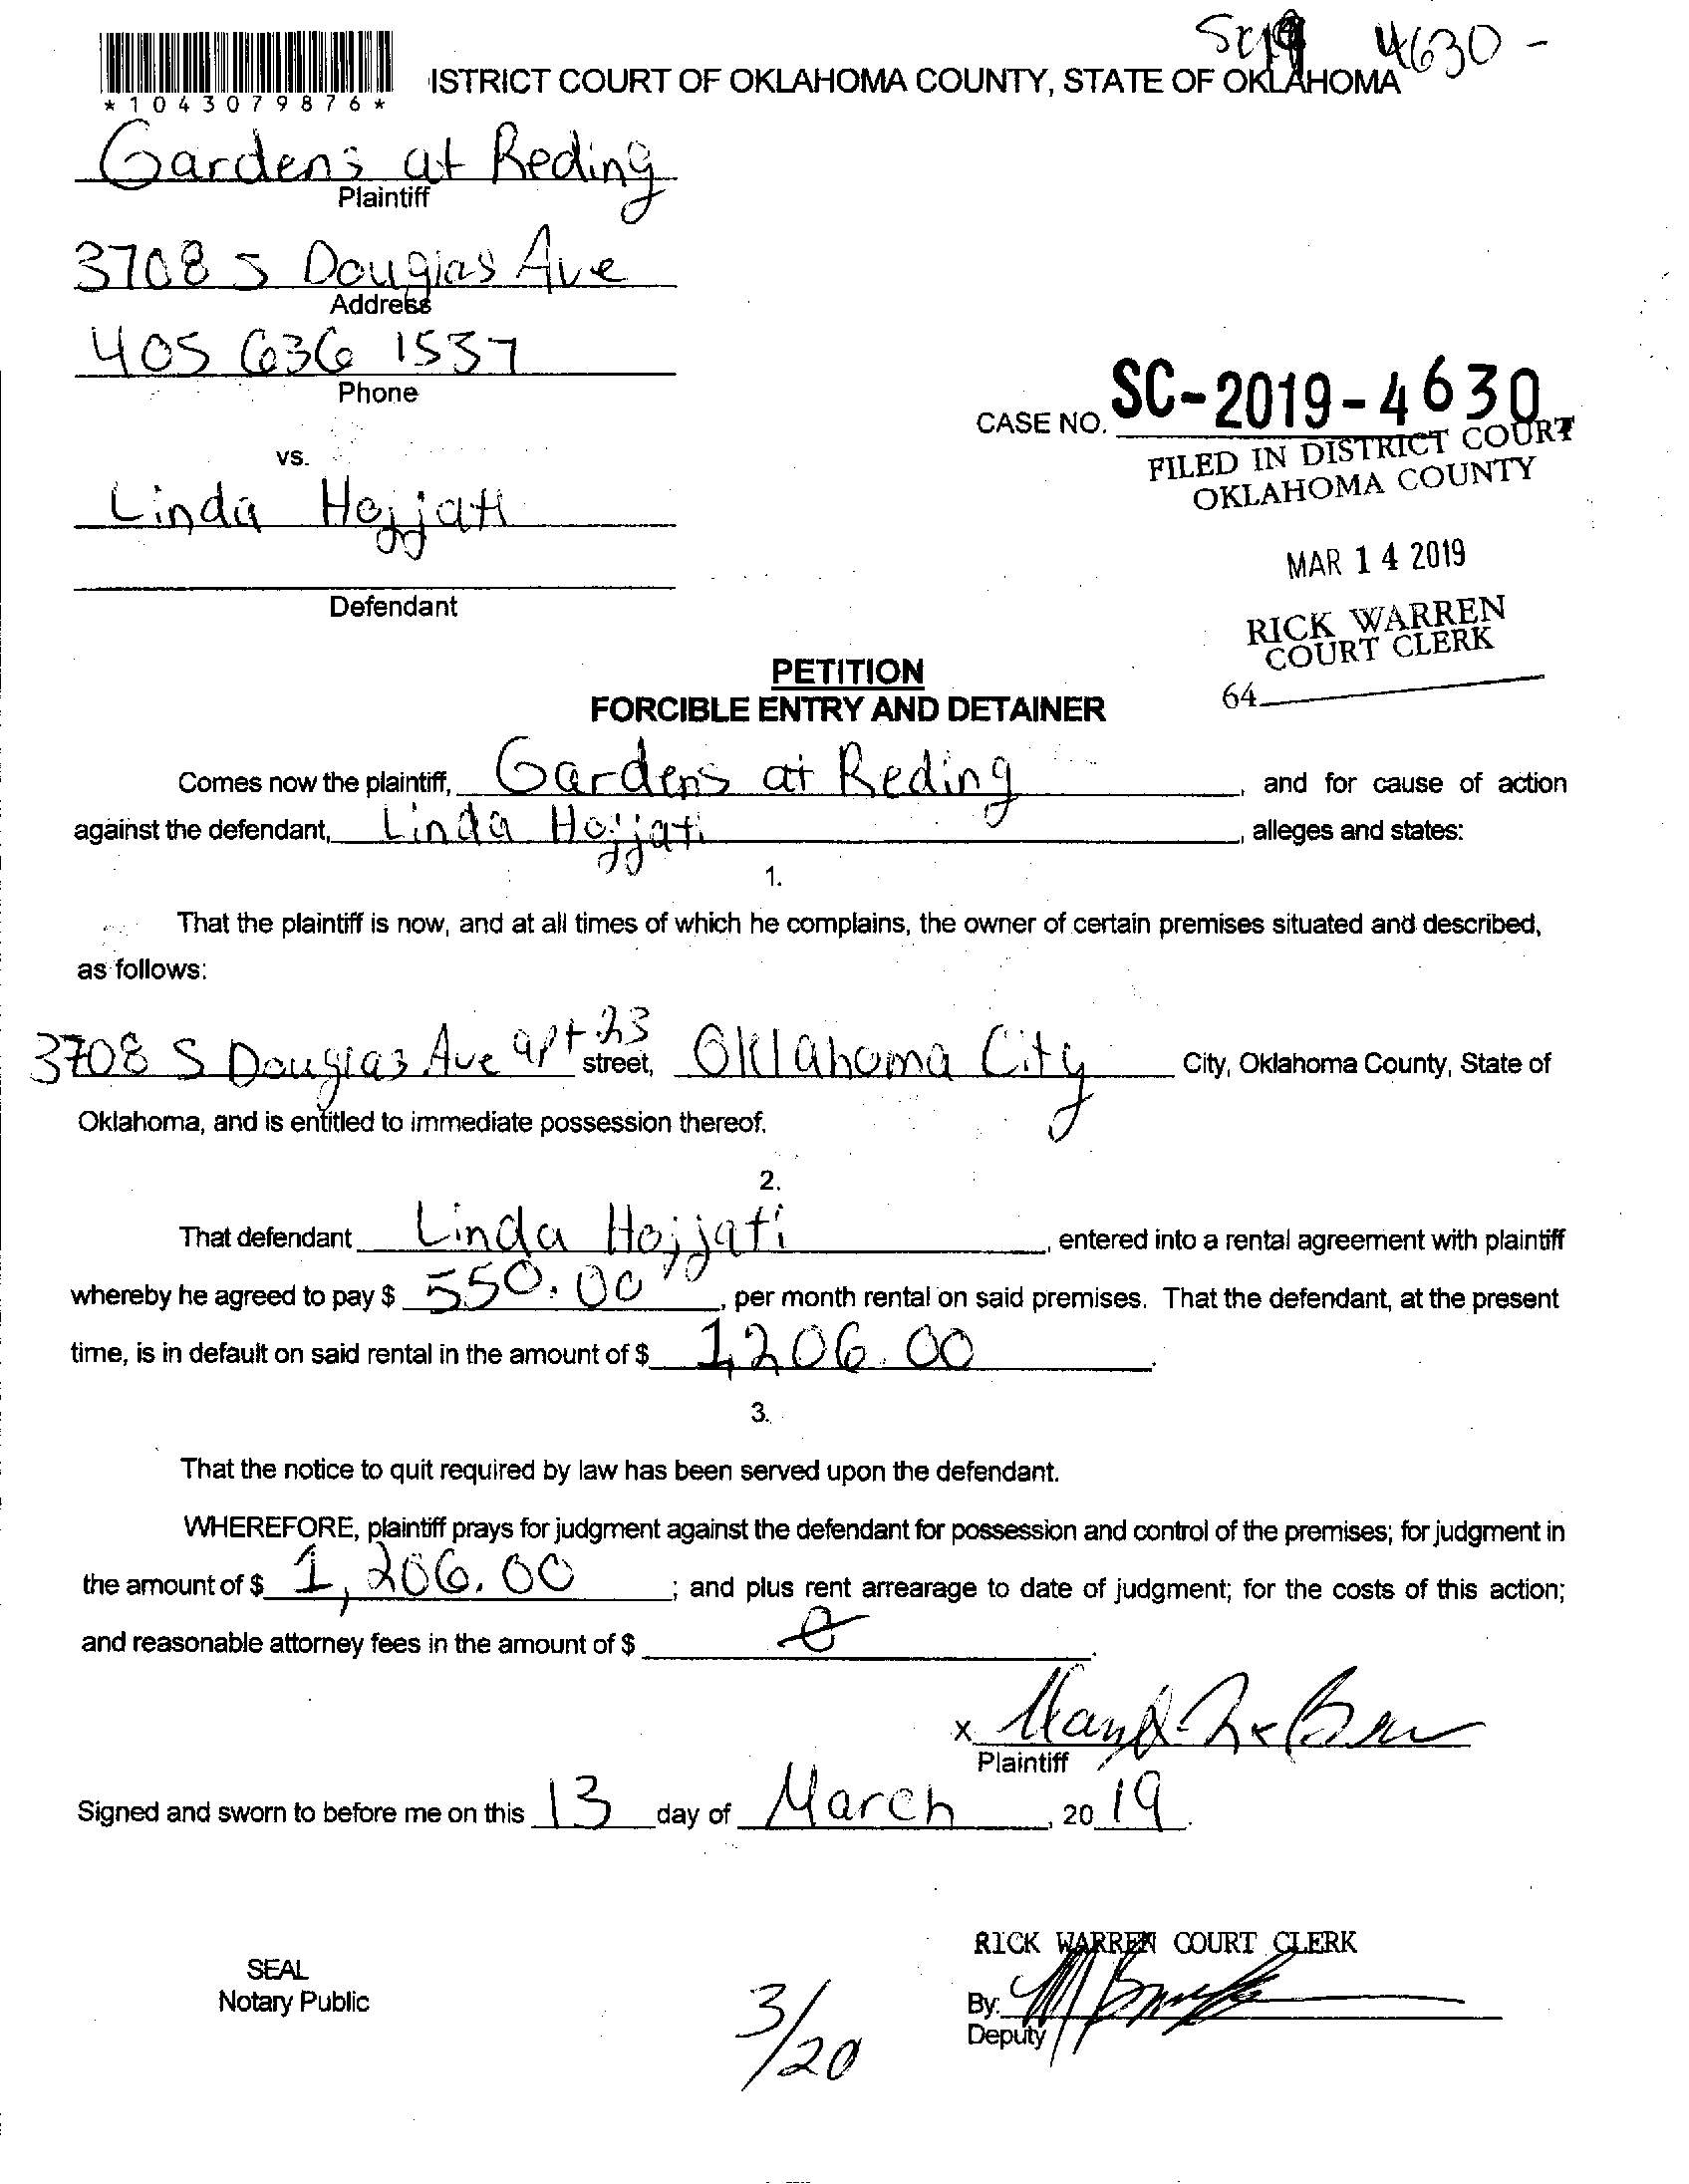 4630 -
*1043079876*
ISTRICT COURT OF OKLAHOMA COUNTY, STATE OF OKLAHOMA
Gardens at Reding
Plaintiff
3708 S Douglas Ave
Address
405 636 1537
Phone
CASE NO. SC-2019-4630
FILED IN DISTRICT COURT
OKLAHOMA COUNTY
vs.
Linda Hojjati
MAR 14 2019
Defendant
RICK WARREN
COURT CLERK
64
PETITION
FORCIBLE ENTRY AND DETAINER
Comes now the plaintiff, Gardens at Reding, and for cause of action
against the defendant, Linda Hojjati, alleges and states:
1.
That the plaintiff is now, and at all times of which he complains, the owner of certain premises situated and described,
as follows:
3708 S Douglas Ave apt 23 street, Oklahoma City City, Oklahoma County, State of
Oklahoma, and is entitled to immediate possession thereof.
2.
That defendant Linda Hojjati, entered into a rental agreement with plaintiff
whereby he agreed to pay $ 550.00, per month rental on said premises. That the defendant, at the present
time, is in default on said rental in the amount of $ 1,206.00.
3.
That the notice to quit required by law has been served upon the defendant.
WHEREFORE, plaintiff prays for judgment against the defendant for possession and control of the premises; for judgment in
the amount of $ 1,206.00; and plus rent arrearage to date of judgment; for the costs of this action;
and reasonable attorney fees in the amount of $
X
Plaintiff
Signed and sworn to before me on this 13 day of March, 20 19.
RICK WARREN COURT CLERK
SEAL
Notary Public
By:
Deputy
3/20